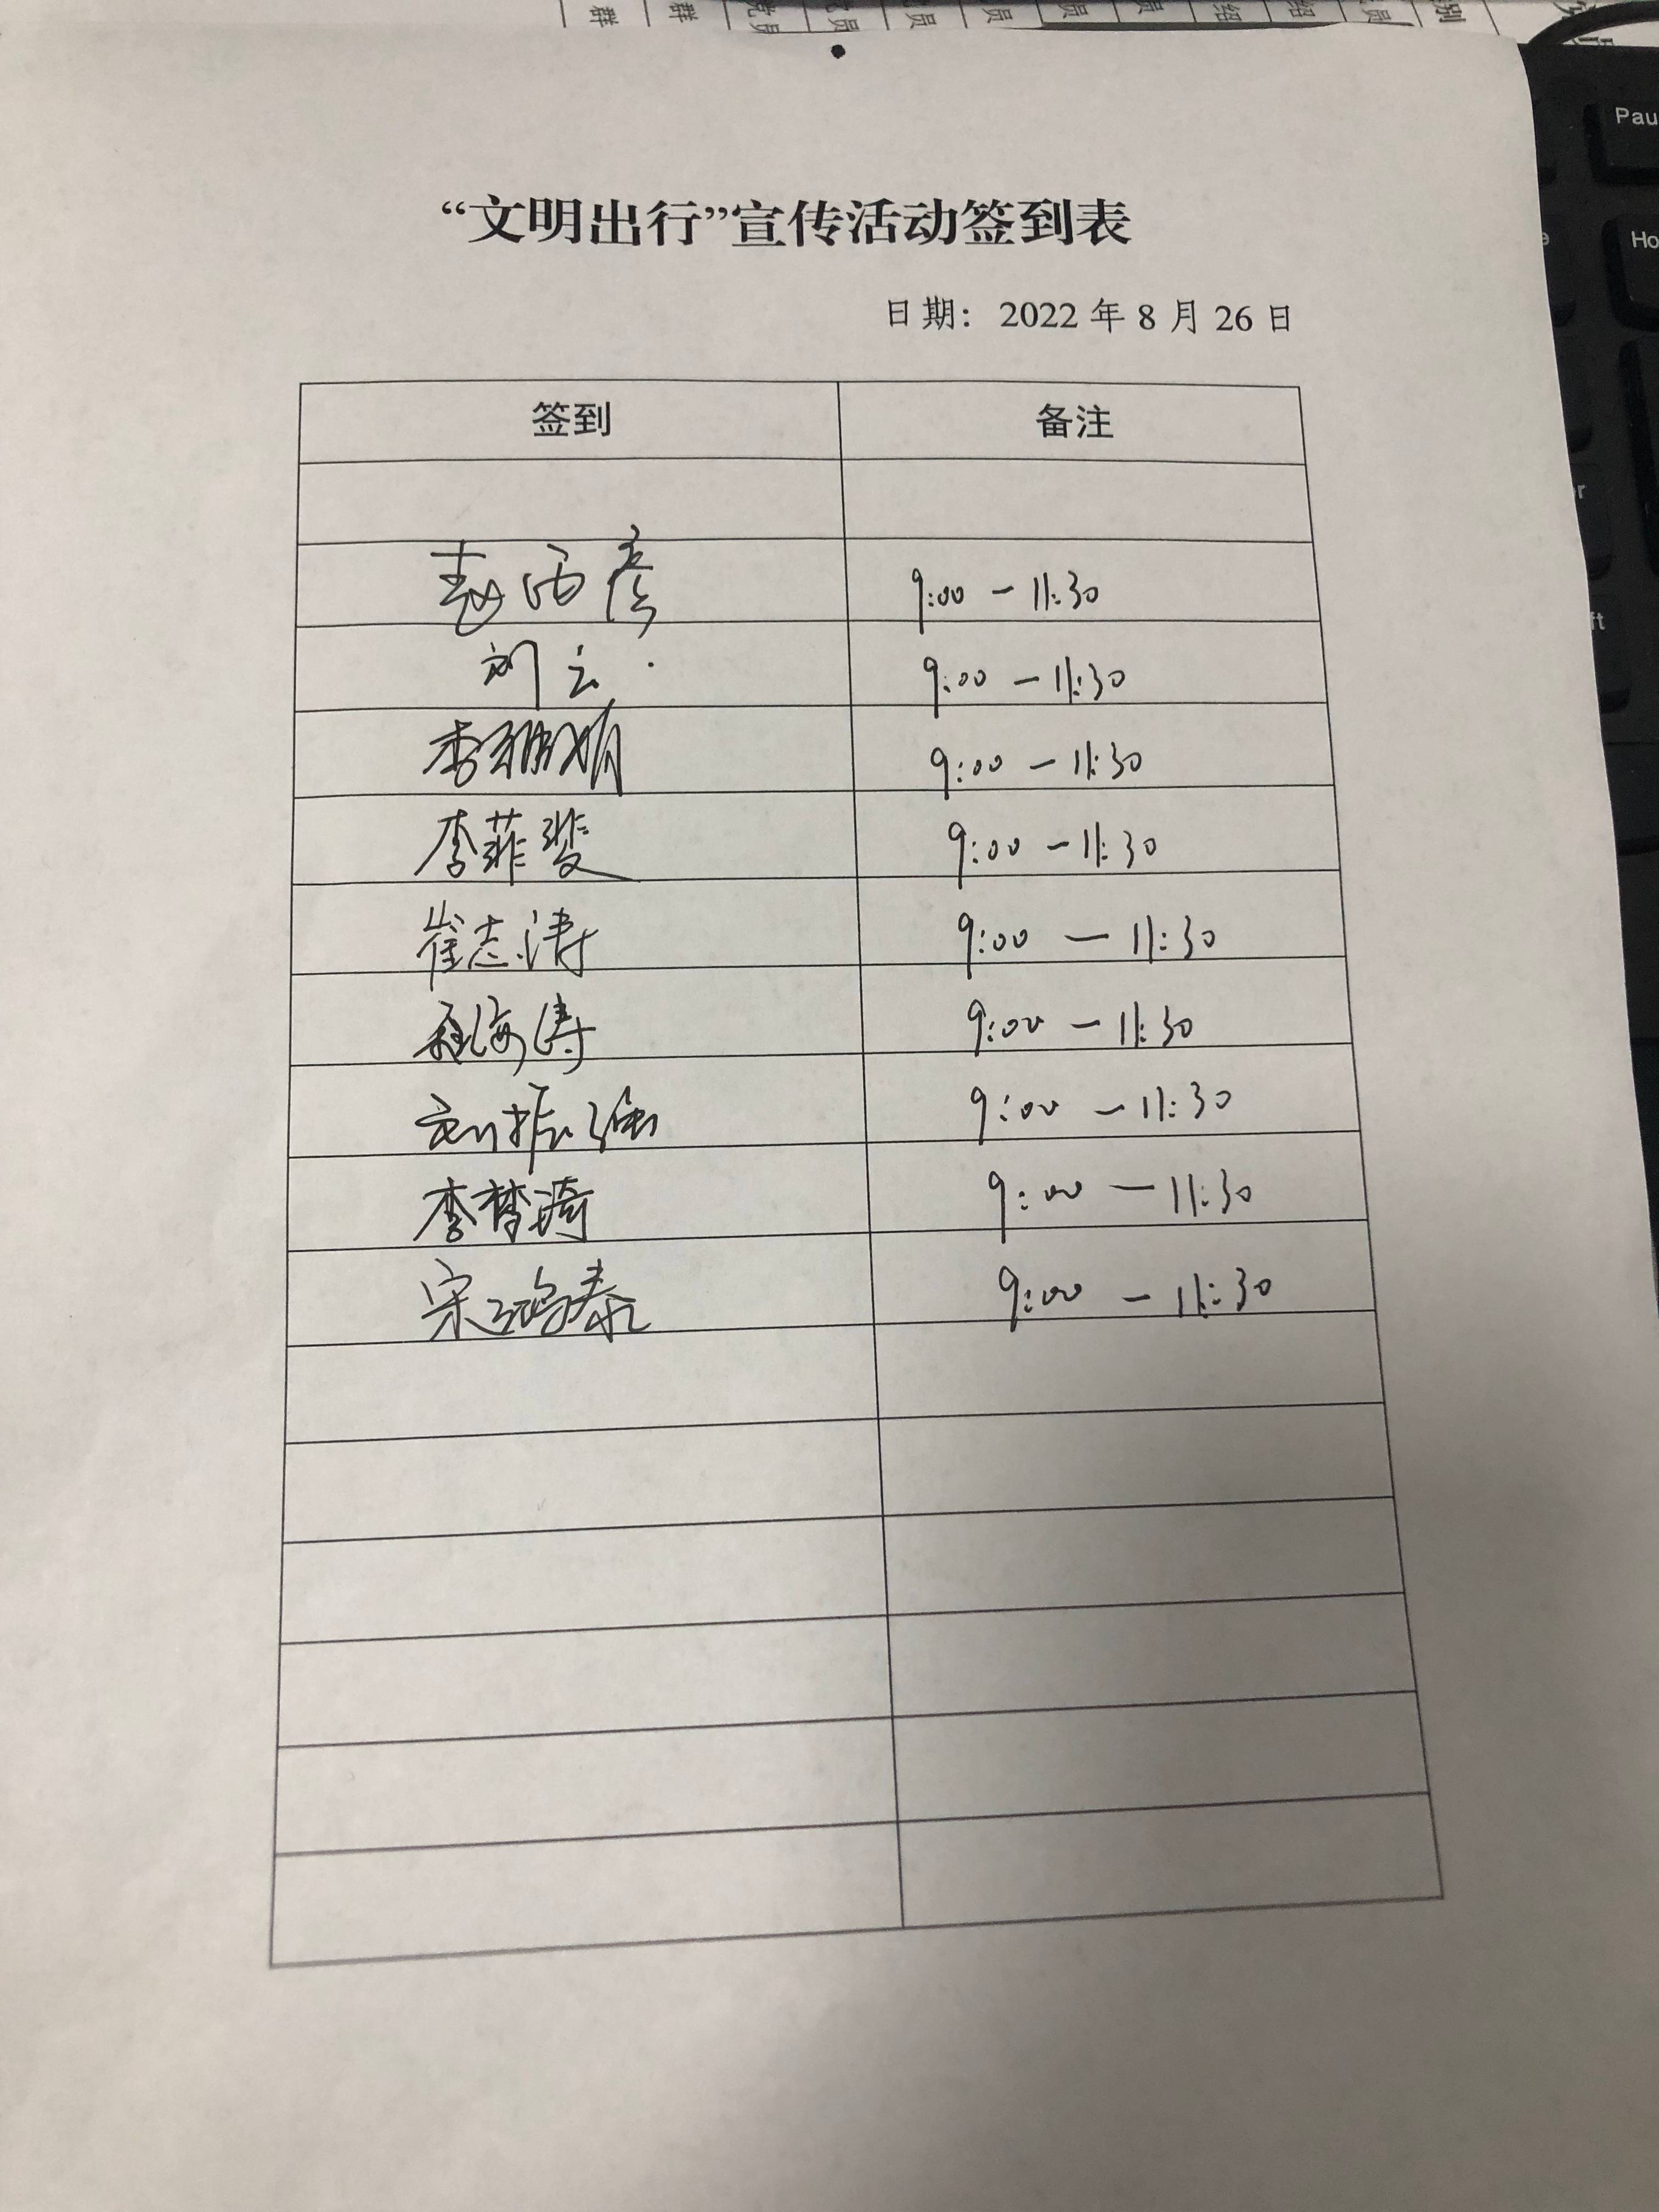 “文明出行”宣传活动签到表
日期： 2022 年 8 月 26 日
签到 备注
9:00 - 11:30
刘云 9:00 - 11:30
李 9:00 - 11:30
李菲斐 9:00 - 11:30
崔志涛 9:00 - 11:30
程海涛 9:00 - 11:30
刘振强 9:00 - 11:30
李梦琦 9:00 - 11:30
宋鸿泰 9:00 - 11:30
Pau
Ho